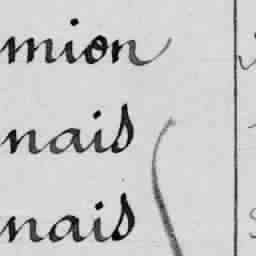 mion
nais
nais